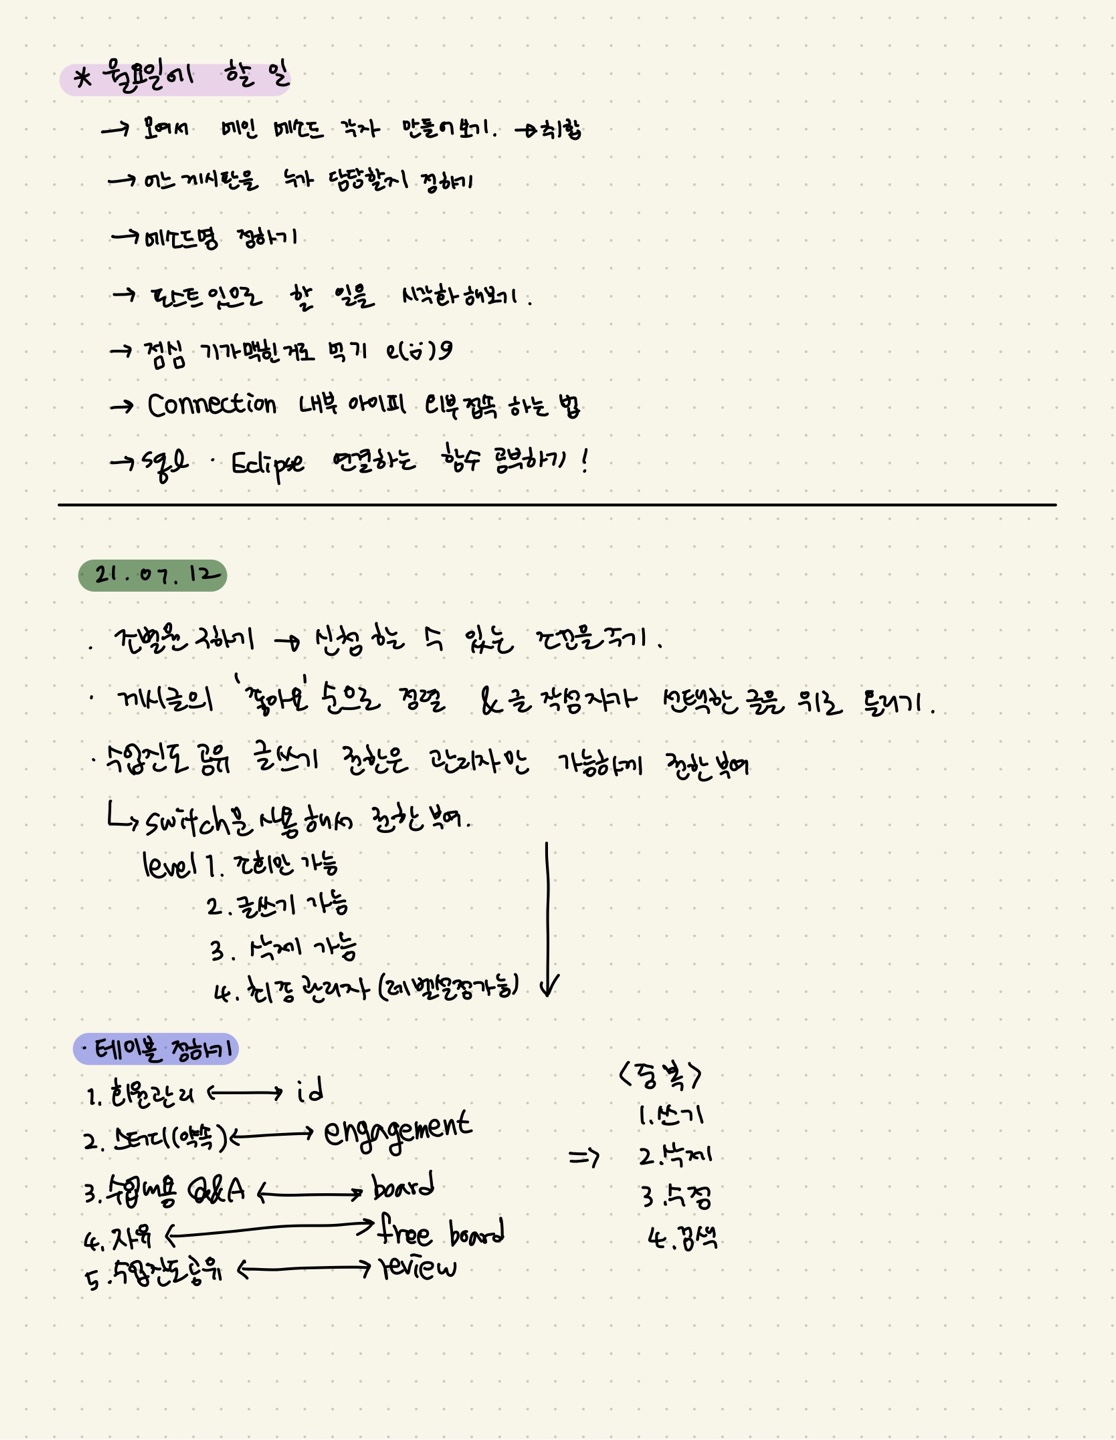 * 월요일에 할 일
→ 모여서 메인 메소드 각자 만들어보기. → 취합
→ 어느 게시판을 누가 담당할지 정하기
→ 메소드명 정하기
→ 포스트잇으로 할 일을 시각화 해보기.
→ 점심 기가맥힌거로 먹기 e(ㅎ)9
→ Connection 내부 아이피 외부접속 하는 법
→ sql · Eclipse 연결하는 함수 공부하기!
21.07.12
· 조별원 구하기 → 신청 할 수 있는 조건을 주기.
· 게시글의 '좋아요' 순으로 정렬 & 글 작성자가 선택한 글을 위로 올리기.
· 수업진도 공유 글쓰기 권한은 관리자만 가능하게 권한 부여
↳ switch문 사용해서 권한 부여.
level 1. 조회만 가능
2. 글쓰기 가능
3. 삭제 가능
4. 최종 관리자 (레벨설정가능)
· 테이블 정하기
1. 회원관리 ↔ id
2. 스터디(약속) ↔ engagement
3. 수업내용 Q&A ↔ board
4. 자유 ↔ free board
5. 수업진도공유 ↔ review
⇒ <중복>
1. 쓰기
2. 삭제
3. 수정
4. 검색